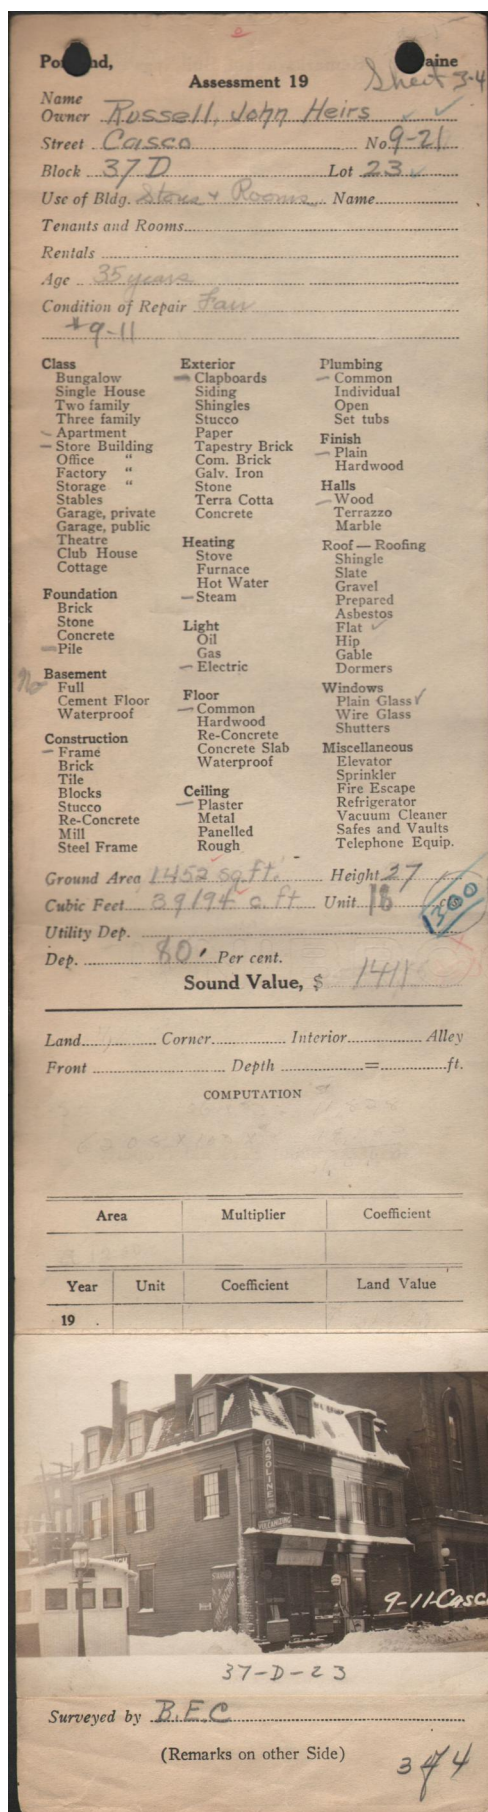 Portland, Maine
Assessment 19
Sheet 3-4
Name
Owner Russell, John Heirs
Street Casco No. 9-21
Block 37 D Lot 23
Use of Bldg. Stores + Rooms Name
Tenants and Rooms
Rentals
Age 35 years
Condition of Repair Fair
*9-11
Class
Bungalow
Single House
Two family
Three family
Apartment
Store Building
Office "
Factory "
Storage "
Stables
Garage, private
Garage, public
Theatre
Club House
Cottage
Foundation
Brick
Stone
Concrete
Pile
No
Basement
Full
Cement Floor
Waterproof
Construction
Frame
Brick
Tile
Blocks
Stucco
Re-Concrete
Mill
Steel Frame
Exterior
Clapboards
Siding
Shingles
Stucco
Paper
Tapestry Brick
Com. Brick
Galv. Iron
Stone
Terra Cotta
Concrete
Heating
Stove
Furnace
Hot Water
Steam
Light
Oil
Gas
Electric
Floor
Common
Hardwood
Re-Concrete
Concrete Slab
Waterproof
Ceiling
Plaster
Metal
Panelled
Rough
Plumbing
Common
Individual
Open
Set tubs
Finish
Plain
Hardwood
Halls
Wood
Terrazzo
Marble
Roof — Roofing
Shingle
Slate
Gravel
Prepared
Asbestos
Flat
Hip
Gable
Dormers
Windows
Plain Glass
Wire Glass
Shutters
Miscellaneous
Elevator
Sprinkler
Fire Escape
Refrigerator
Vacuum Cleaner
Safes and Vaults
Telephone Equip.
Ground Area 1452 sq.ft. Height 27
Cubic Feet 39194 c. ft Unit 18
300
Utility Dep.
Dep. 80 Per cent.
Sound Value, $ 1411
Land Corner Interior Alley
Front Depth = ft.
COMPUTATION
Area Multiplier Coefficient
Year Unit Coefficient Land Value
19 .
GASOLINE
9-11-Casc
37-D-23
Surveyed by B.F.C
(Remarks on other Side)
3 of 4